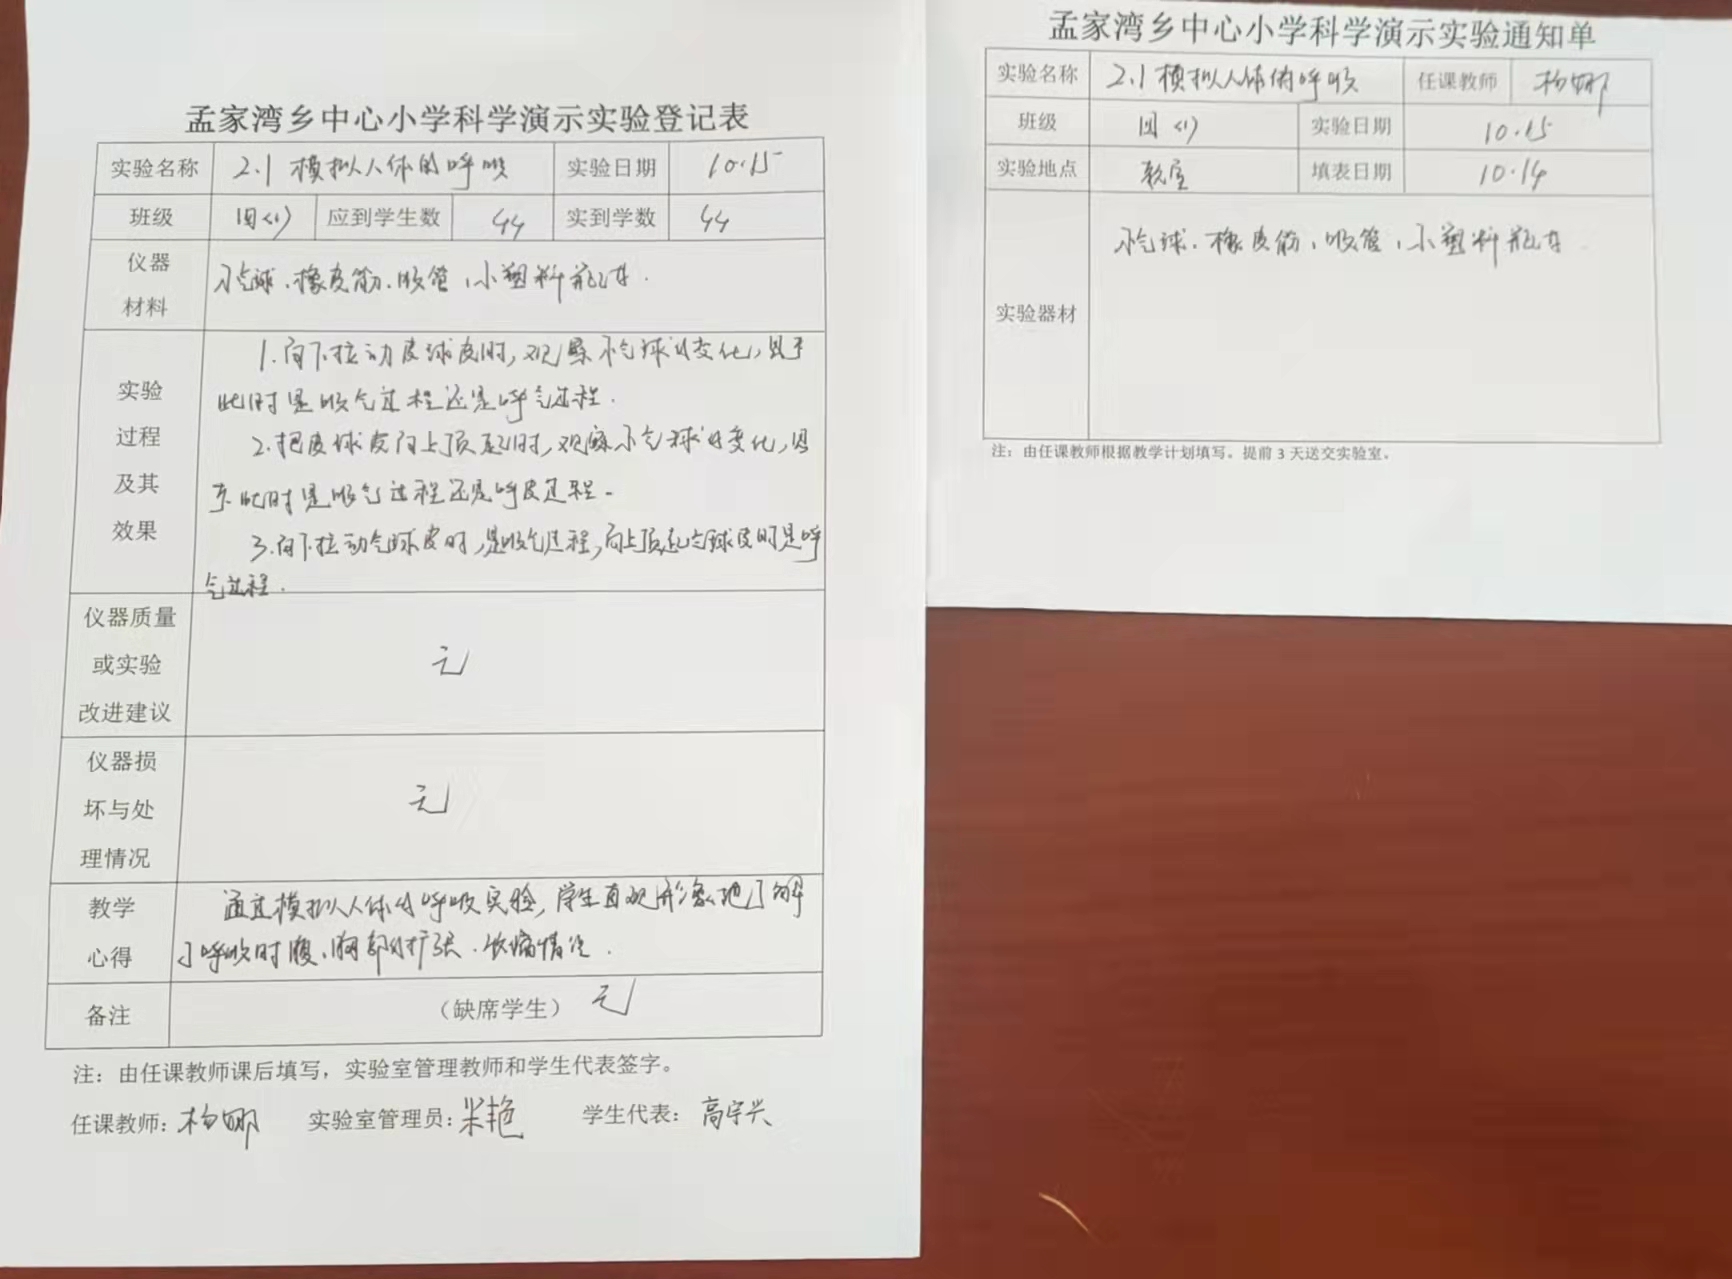 孟家湾乡中心小学科学演示实验登记表
实验名称 2.1 模拟人体的呼吸 实验日期 10.15
班级 四(1) 应到学生数 44 实到学数 44
仪器材料 小气球、橡皮筋、吸管、小塑料瓶等.
实验过程及其效果
1.向下拉动皮球皮时,观察小气球的变化,
此时是吸气过程还是呼气过程.
2.把皮球皮向上顶起时,观察小气球的变化,
此时是吸气过程还是呼过程.
3.向下拉动气球皮时,是吸气过程,向上顶起气球皮时是呼
气过程.
仪器质量或实验改进建议 无
仪器损坏与处理情况 无
教学心得
通过模拟人体的呼吸实验,学生直观形象地了解
了呼吸时腹、胸部的扩张、情况.
备注 （缺席学生） 无
注：由任课教师课后填写，实验室管理教师和学生代表签字。
任课教师: 杨娜 实验室管理员: 米艳 学生代表: 高宇兴
孟家湾乡中心小学科学演示实验通知单
实验名称 2.1 模拟人体的呼吸 任课教师 杨娜
班级 四(1) 实验日期 10.15
实验地点 教室 填表日期 10.14
实验器材 小气球、橡皮筋、吸管、小塑料瓶等
注：由任课教师根据教学计划填写。提前 3 天送交实验室。